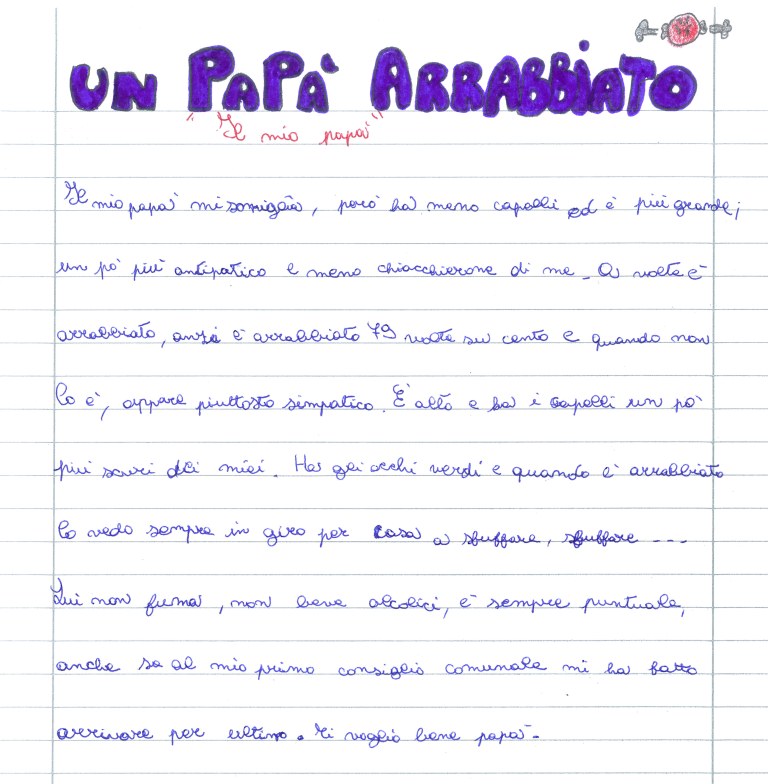 UN PAPÀ ARRABBIATO
"Il mio papà"
Il mio papà mi somiglia, però ha meno capelli ed è più grande;
un pò più antipatico e meno chiacchierone di me. A volte è
arrabbiato, anzi è arrabbiato 79 volte su cento e quando non
lo è, appare piuttosto simpatico. È alto e ha i capelli un pò
più scuri dei miei. Ha gli occhi verdi e quando è arrabbiato
lo vedo sempre in giro per casa a sbuffare, sbuffare ---
Lui non fuma, non beve alcolici, è sempre puntuale,
anche se al mio primo consiglio comunale mi ha fatto
arrivare per ultimo. Ti voglio bene papà.